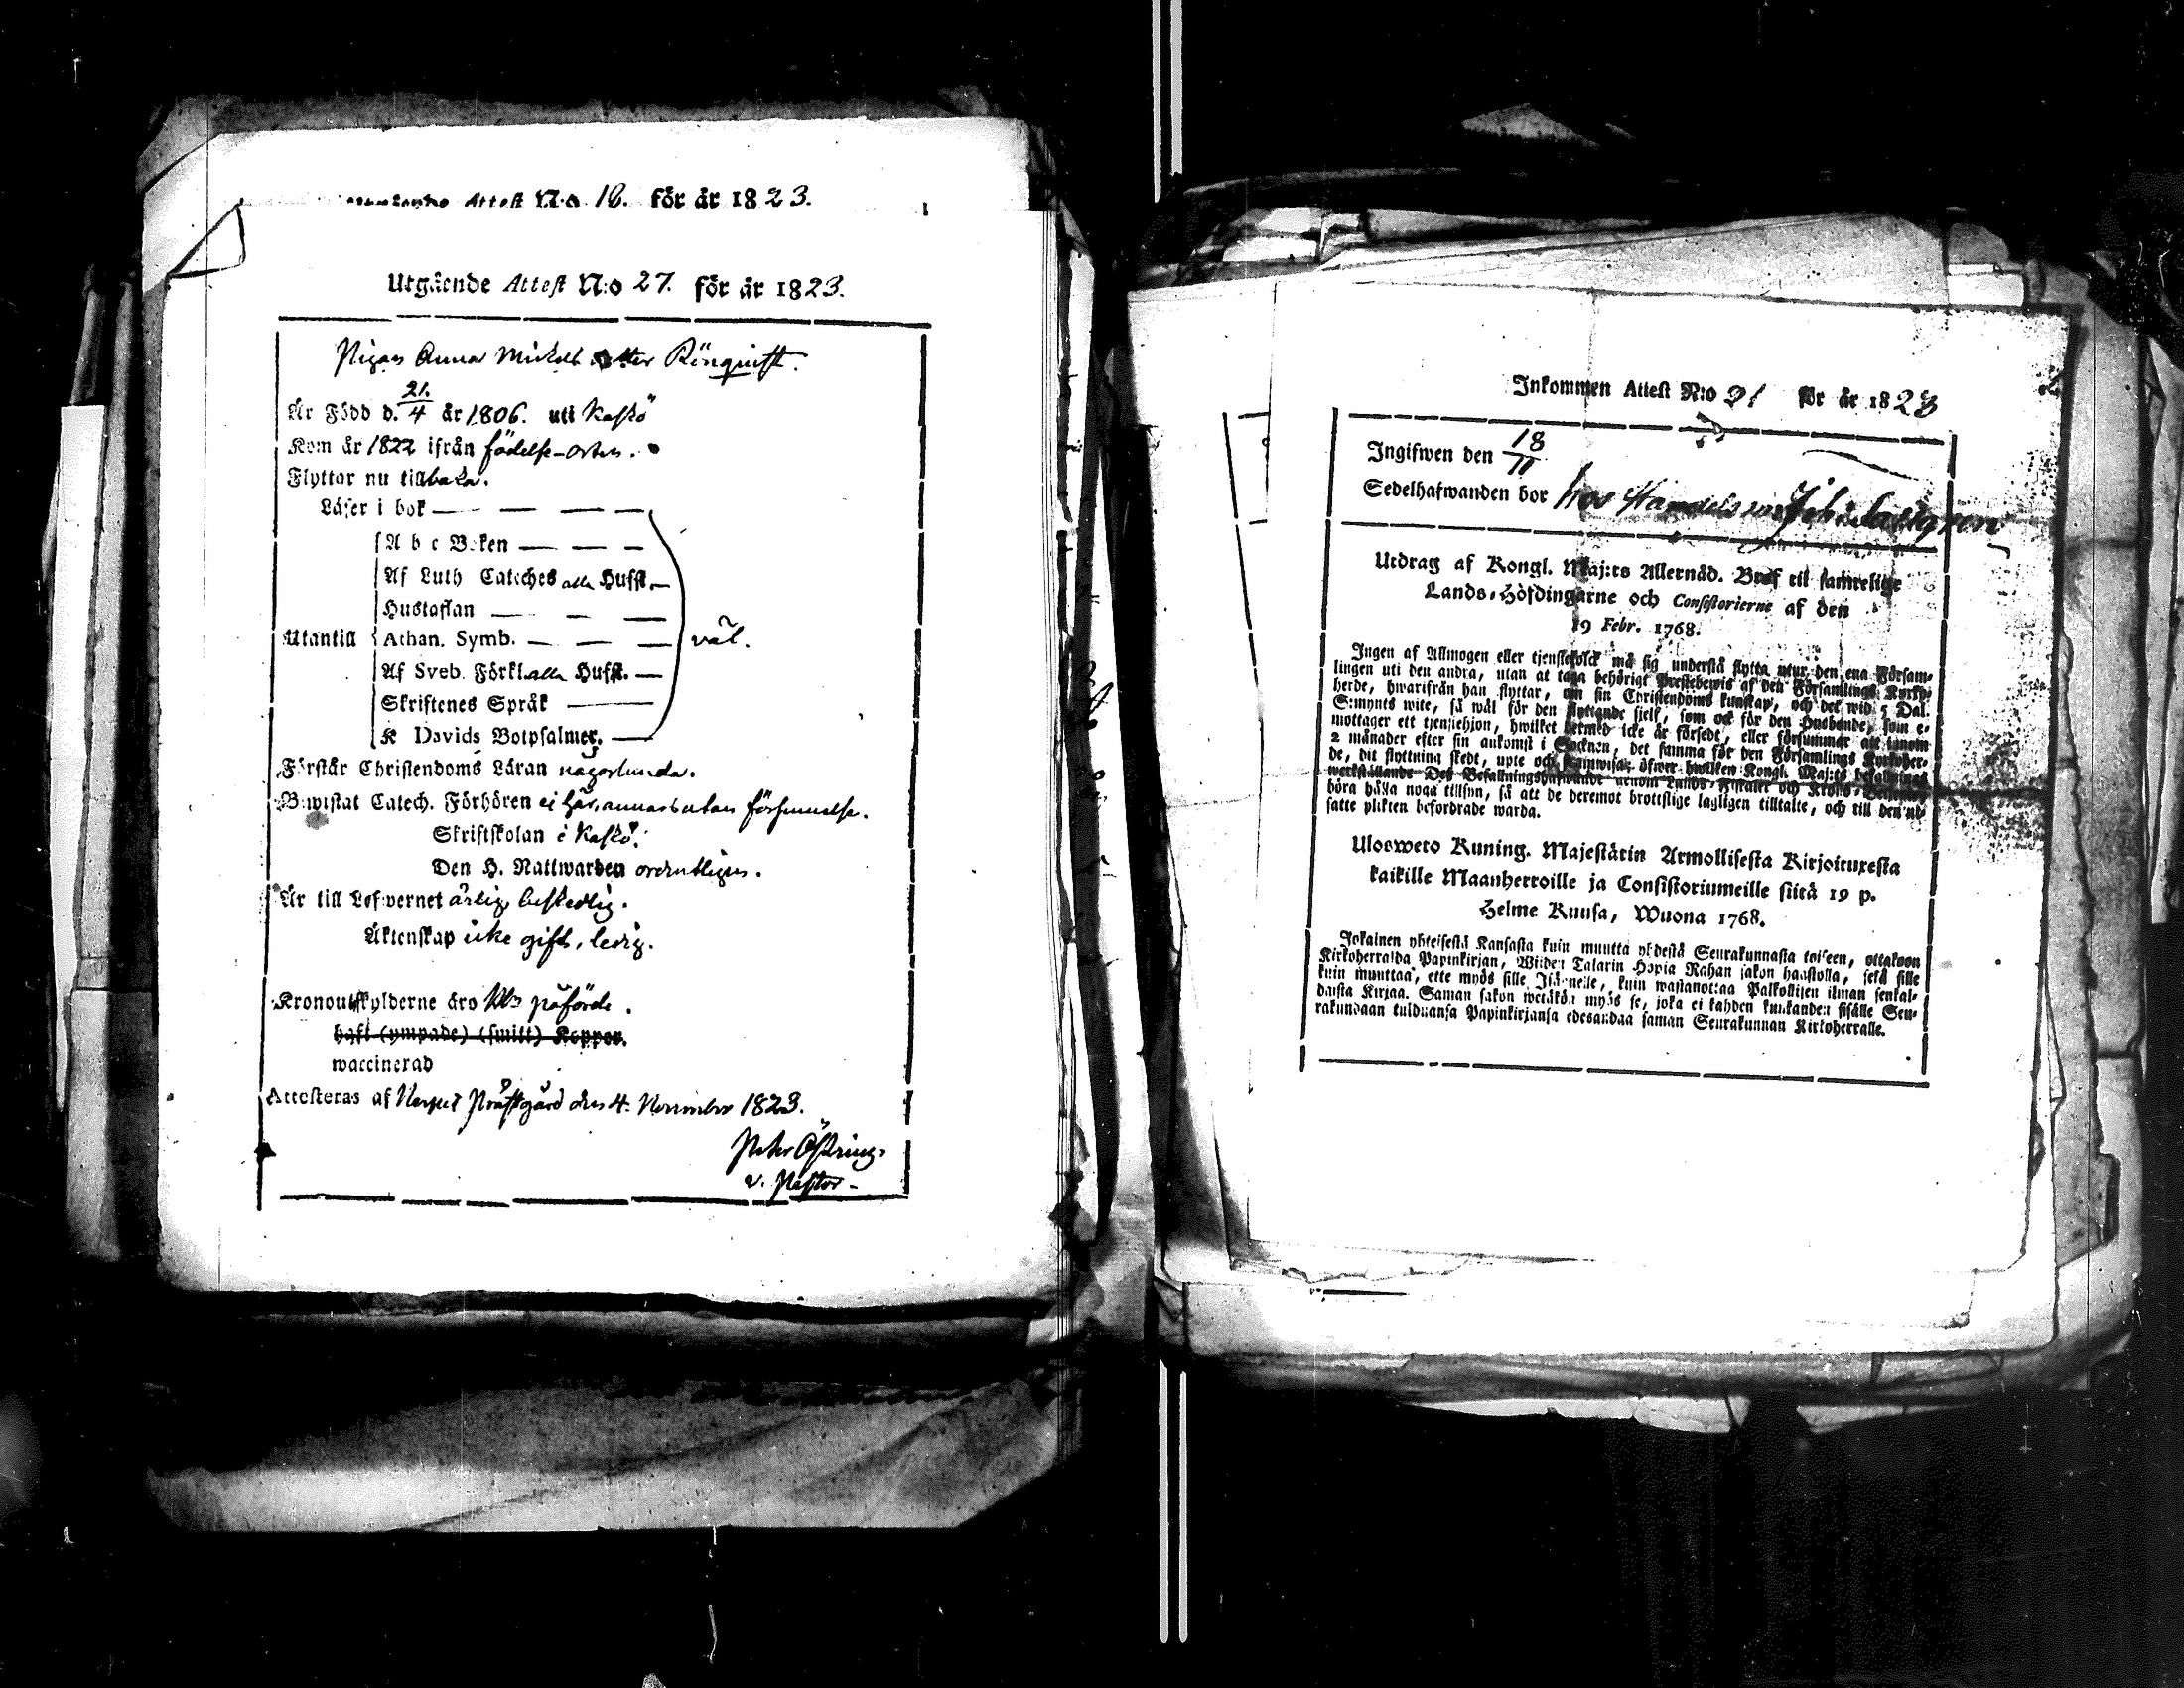 Attest N:o 18. för år 1823.
Utgående Attest N:o 27. för år 1823.
Pigan Anna Mickels dotter Rönquist.
Är Född d. 21/4 år 1806. uti Kaskö
Kom år 1822 ifrån födelse-orten.
Flyttar nu tillbaka.
Läser i bok
A b c Boken
Af Luth Catches alla Hufst.
Hustaflan
Utantill Athan. Symb. väl.
Af Sveb. Förkl. alla Hufst.
Skriftenes Språk
K Davids Botpsalmer.
Förstår Christendoms Läran någorlunda.
Bewistat Catech. Förhören ej här, annars utan försummelse.
Skriftskolan i Kaskö.
Den H. Nattwarden ordentligen.
Är till Lefwernet ärlig, beskedlig.
Äktenskap icke gift, ledig.
Kronoutskylderne äro påförde.
haft (ympade) (smitt) Koppor.
waccinerad
Attesteras af Nerpes Prästgård den 4. November 1823.
Petr Östring
v. Pastor
Inkommen Attest N:o 31 för år 1823
Ingifwen den 18/11
Sedelhafwanden bor hos Handelsm
Utdrag af Kongl. Maj:ts Allernåd. Bref til samtelige
Lands-Höfdingarne och Consistorierne af den
19 Febr. 1768.
Ingen af Allmogen eller tjenstefolck må sig understå flytta utur den ena Försam-
lingen uti den andra, utan at taga behörigt Prestebewis af den Församlings Kyrko-
herde, hwarifrån han flyttar, om sin Christendoms kunskap, och det wid 5 Dal.
S:mynts wite, så wäl för den flyttande sielf, som ock för den Husbonde, som e-
mottager ett tjenstehjon, hwilket dermed icke är försedt, eller försummar att innom
2 månader efter sin ankomst i Socknen, det samma för den Församlings Kyrkoher-
de, dit flyttning skedt, upte och framwisa; öfwer hwilken Kongl. Maj:ts befallnings
werkställande Des Befallningshafwande genom Lands-Fiskaler och Krono-Betjente
böra hålla noga tillsyn, så att de deremot brottslige lagligen tilltalte, och till den ut-
satte plikten befordrade warda.
Ulosweto Kuning. Majestätin Armollisesta Kirjoituxesta
kaikille Maanherroille ja Consistoriumeille siitä 19 p.
Helme Kuusa, Wuona 1768.
Jokainen yhteisestä Kansasta kuin muutta yhdestä Seurakunnasta toiseen, ottakoon
Kirkoherralda Papinkirjan, Wiiden Talarin Hopia Rahan sakon haastolla, sekä sille
kuin muuttaa, ette myös sille Isännelle, kuin wastanottaa Palkollisen ilman senkal-
daista Kirjaa. Saman sakon wetäkön myös se, joka ei kahden kuukauden sisälle Seu-
rakundaan tulduansa Papinkirjansa edesandaa saman Seurakunnan Kirkoherralle.